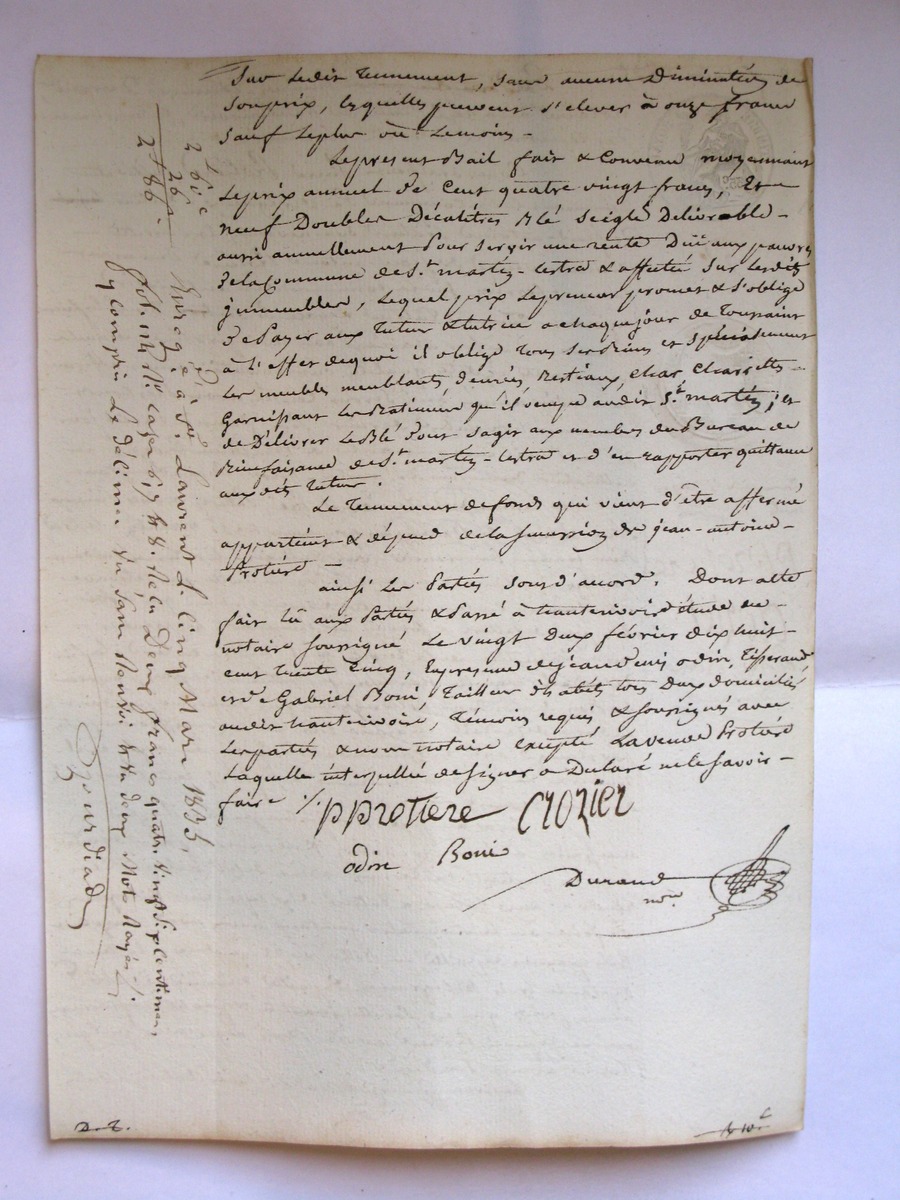 Sur ledit tennement, sans aucune diminution de
son prix, lesquelles peuvent s'elever à onze francs
sauf leplus ou lemoins -
Le present Bail fait & convenu moyennant
Le prix annuel de cent quatre vingt francs, Et
neuf Doubles Décalitres Blé seigle Délivrable -
aussi annuellement pour servir une rente Düe aux pauvres
de la Commune de St. martin-lestra & affectée sur lesdits
jmmeubles, Lequel prix Lepreneur promet & s'oblige
de Payer aux tuteur & tutrice a chaque jour de Toussaint
à l'effet dequoi il oblige tous ses Biens et spécialement
les meubles meublants, denrées, Bestiaux, char charrettes -
Garnissant les Batiments qu'il occupe audit St. martin; et
de Délivrer le Blé dont s'agit aux membres du Bureau de
Bienfaisance de St. martin-lestra et d'en rapporter quittance
auxdits tuteur.
Le Tennement de fonds qui vient d'être affermé
appartient & dépend de la succession de jean-antoine -
Protière -
ainsi les Parties sont d'accord. Dont acte
fait lû aux Parties & Passé à hauterivoire étude du -
notaire soussigné Le vingt deux février dix huit -
cent trente cinq, En presence de jean denis odin, Tisserand,
et de Gabriel Boni, Tailleur d'habits tous deux domiciliés
audit hauterivoire, témoins requis & soussignés avec
Les parties & nous notaire excepté La veuve Protière
Laquelle interpellée de signer a Déclaré ne le savoir -
faire ./.
pprotiere Crozier
odin Boni
Durand
nore
D. T.
2 61 c
26
2 86
Enregé à St. Laurent le cinq Mars 1835,
fol. 114 Vo case 6, 7 & 8. Reçu Deux francs quatre vingt six centimes
y compris le décime
Gourdiad